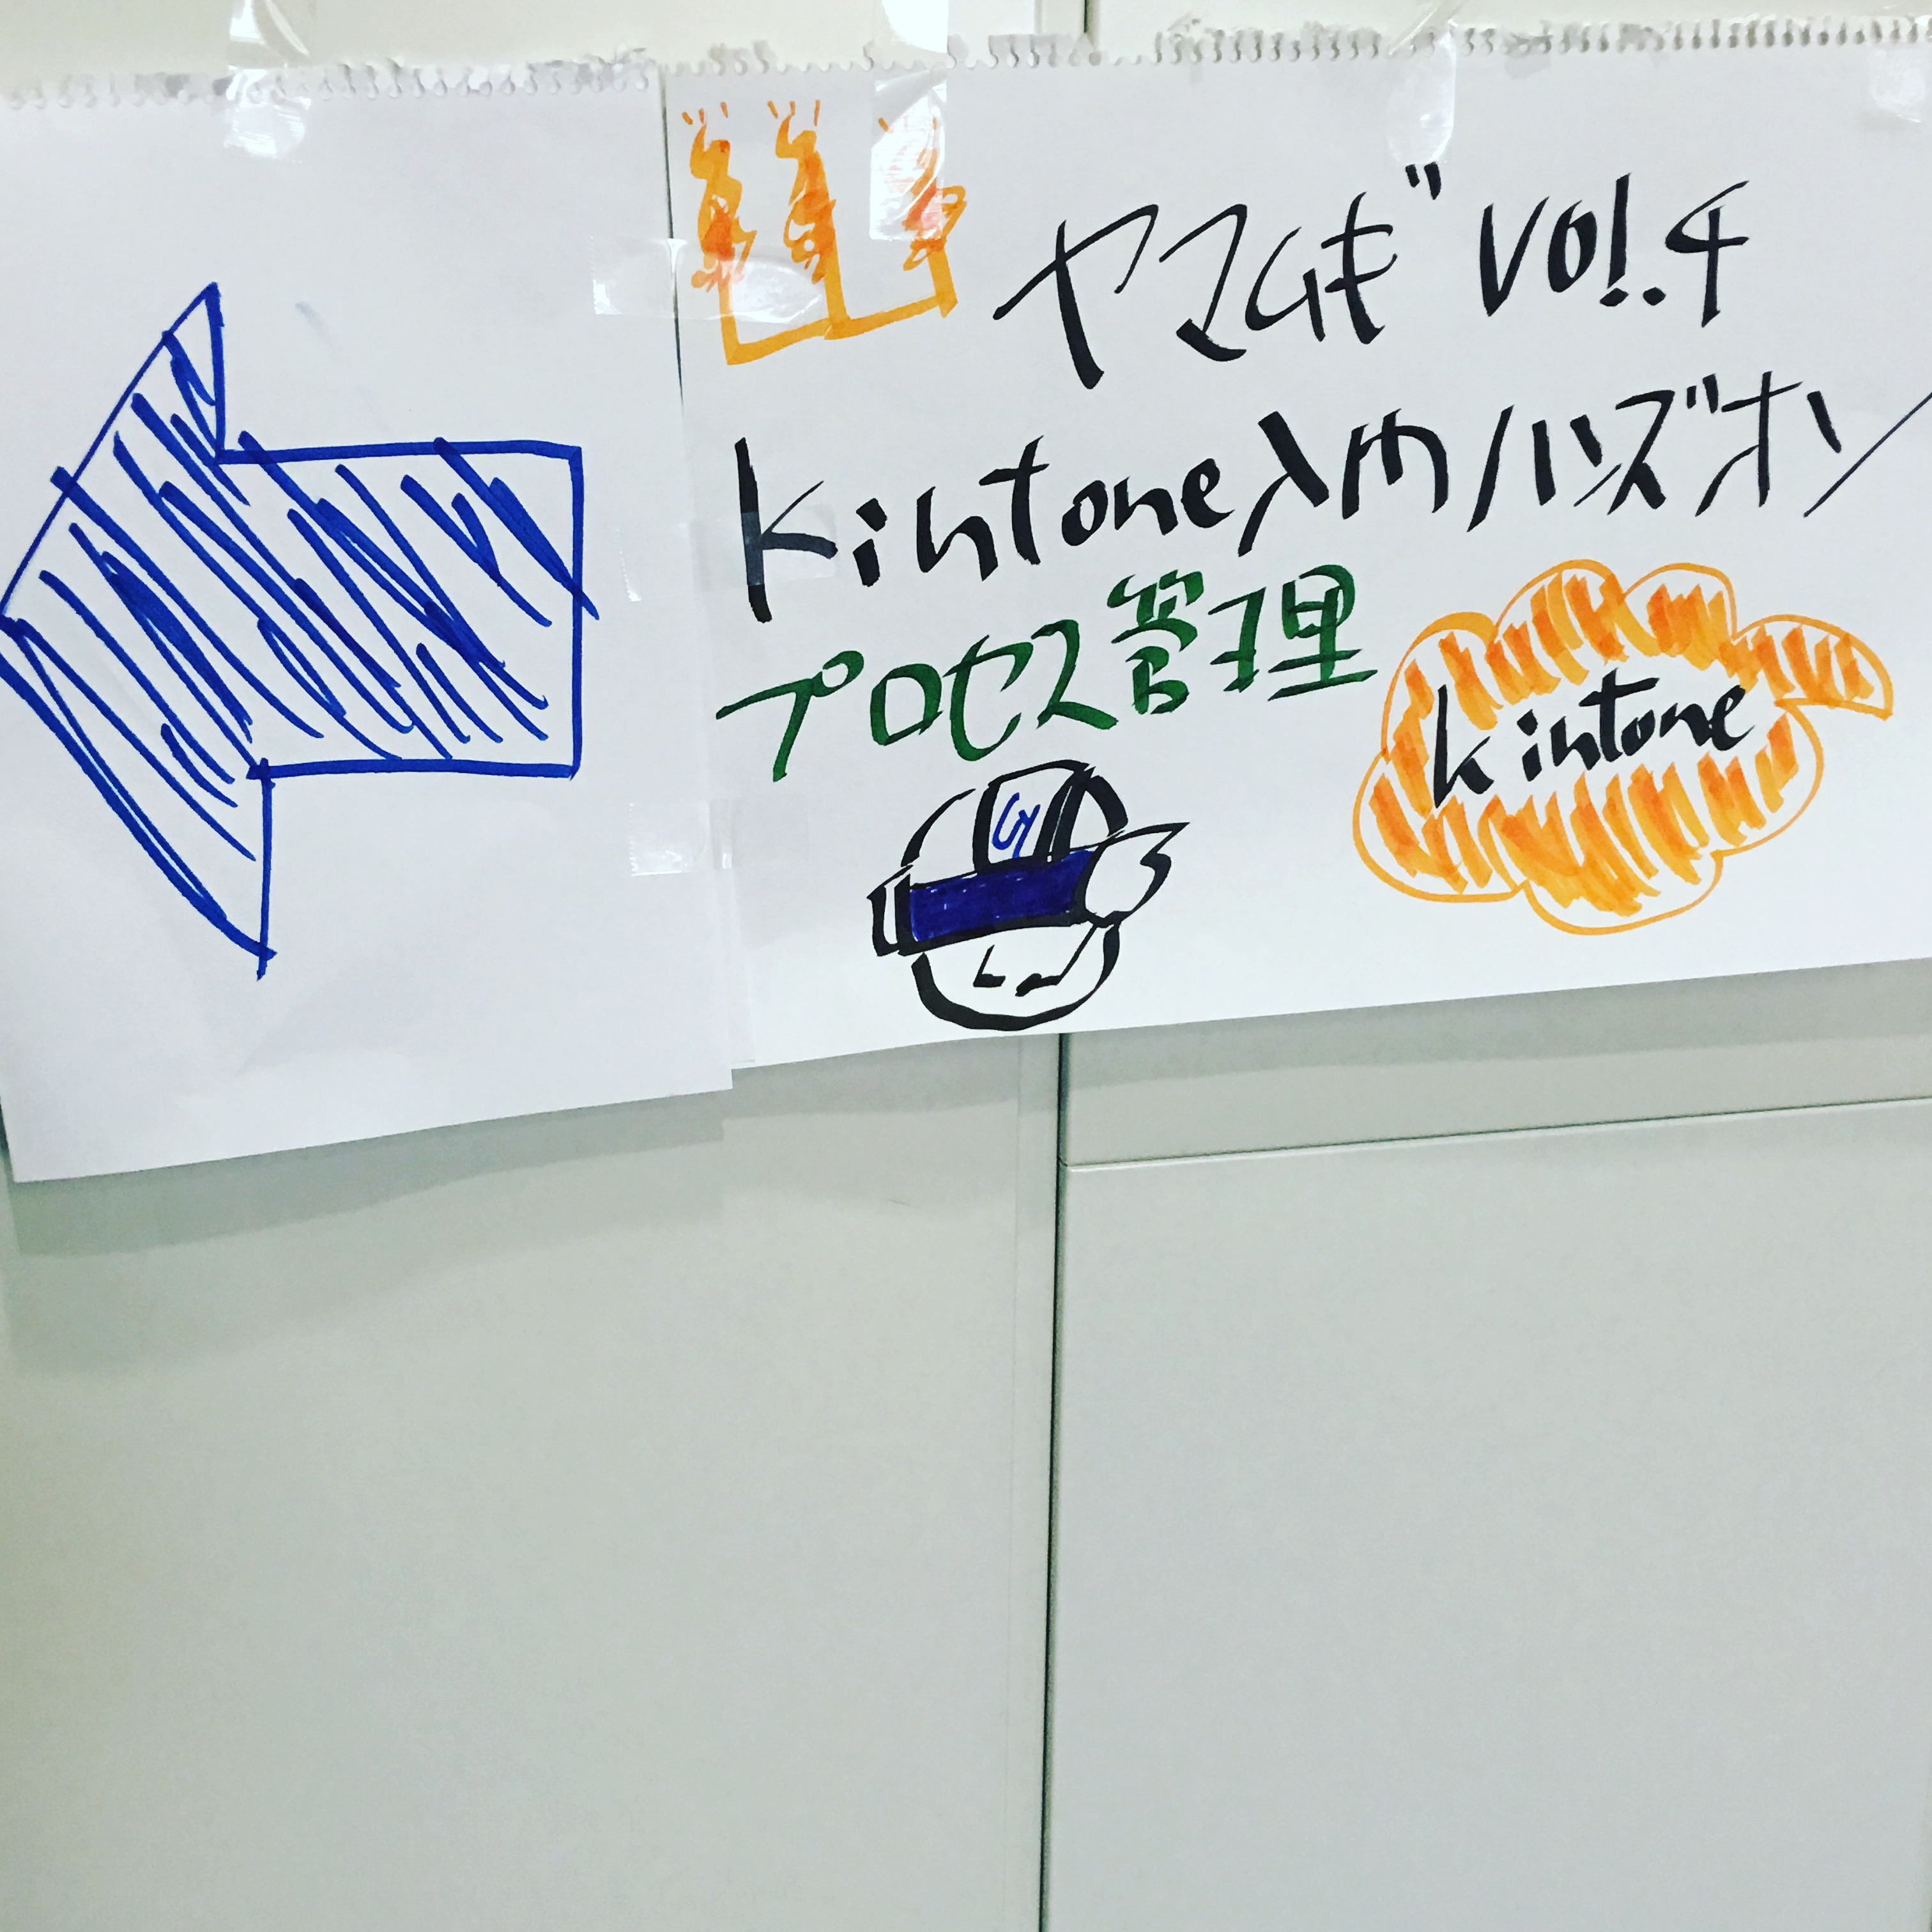 ヤマムギ vol.4
kintone入門ハンズオン
プロセス管理
kintone